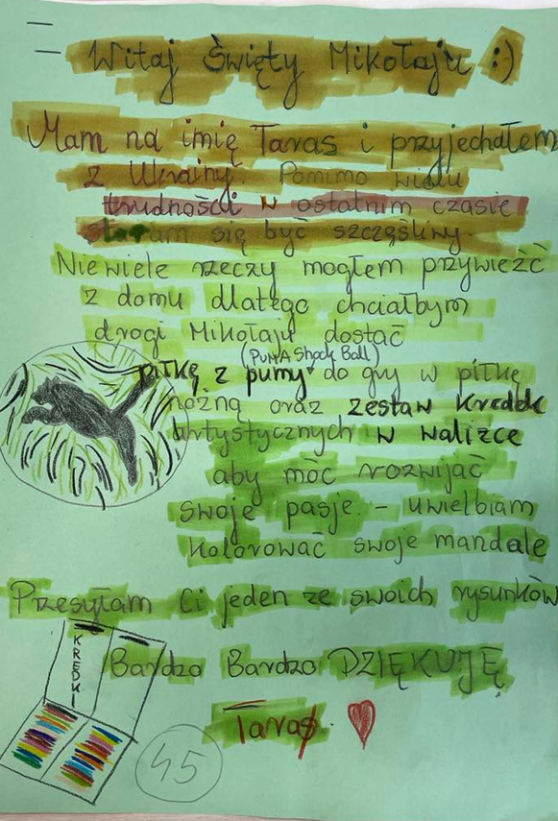 Witaj Święty Mikołaju :)
Mam na imię Taras i przyjechałem
z Ukrainy. Pomimo wielu
trudności w ostatnim czasie
staram się być szczęśliwy.
Niewiele rzeczy mogłem przywieźć
z domu dlatego chciałbym
drogi Mikołaju dostać
(PUMA Shock Ball)
piłkę z pumy do gry w piłkę
nożną oraz zestaw kredek
artystycznych w walizce
aby móc rozwijać
swoje pasje. - uwielbiam
kolorować swoje mandale
Przesyłam Ci jeden ze swoich rysunków
KREDKI
Bardzo Bardzo DZIĘKUJĘ
Taras.
45